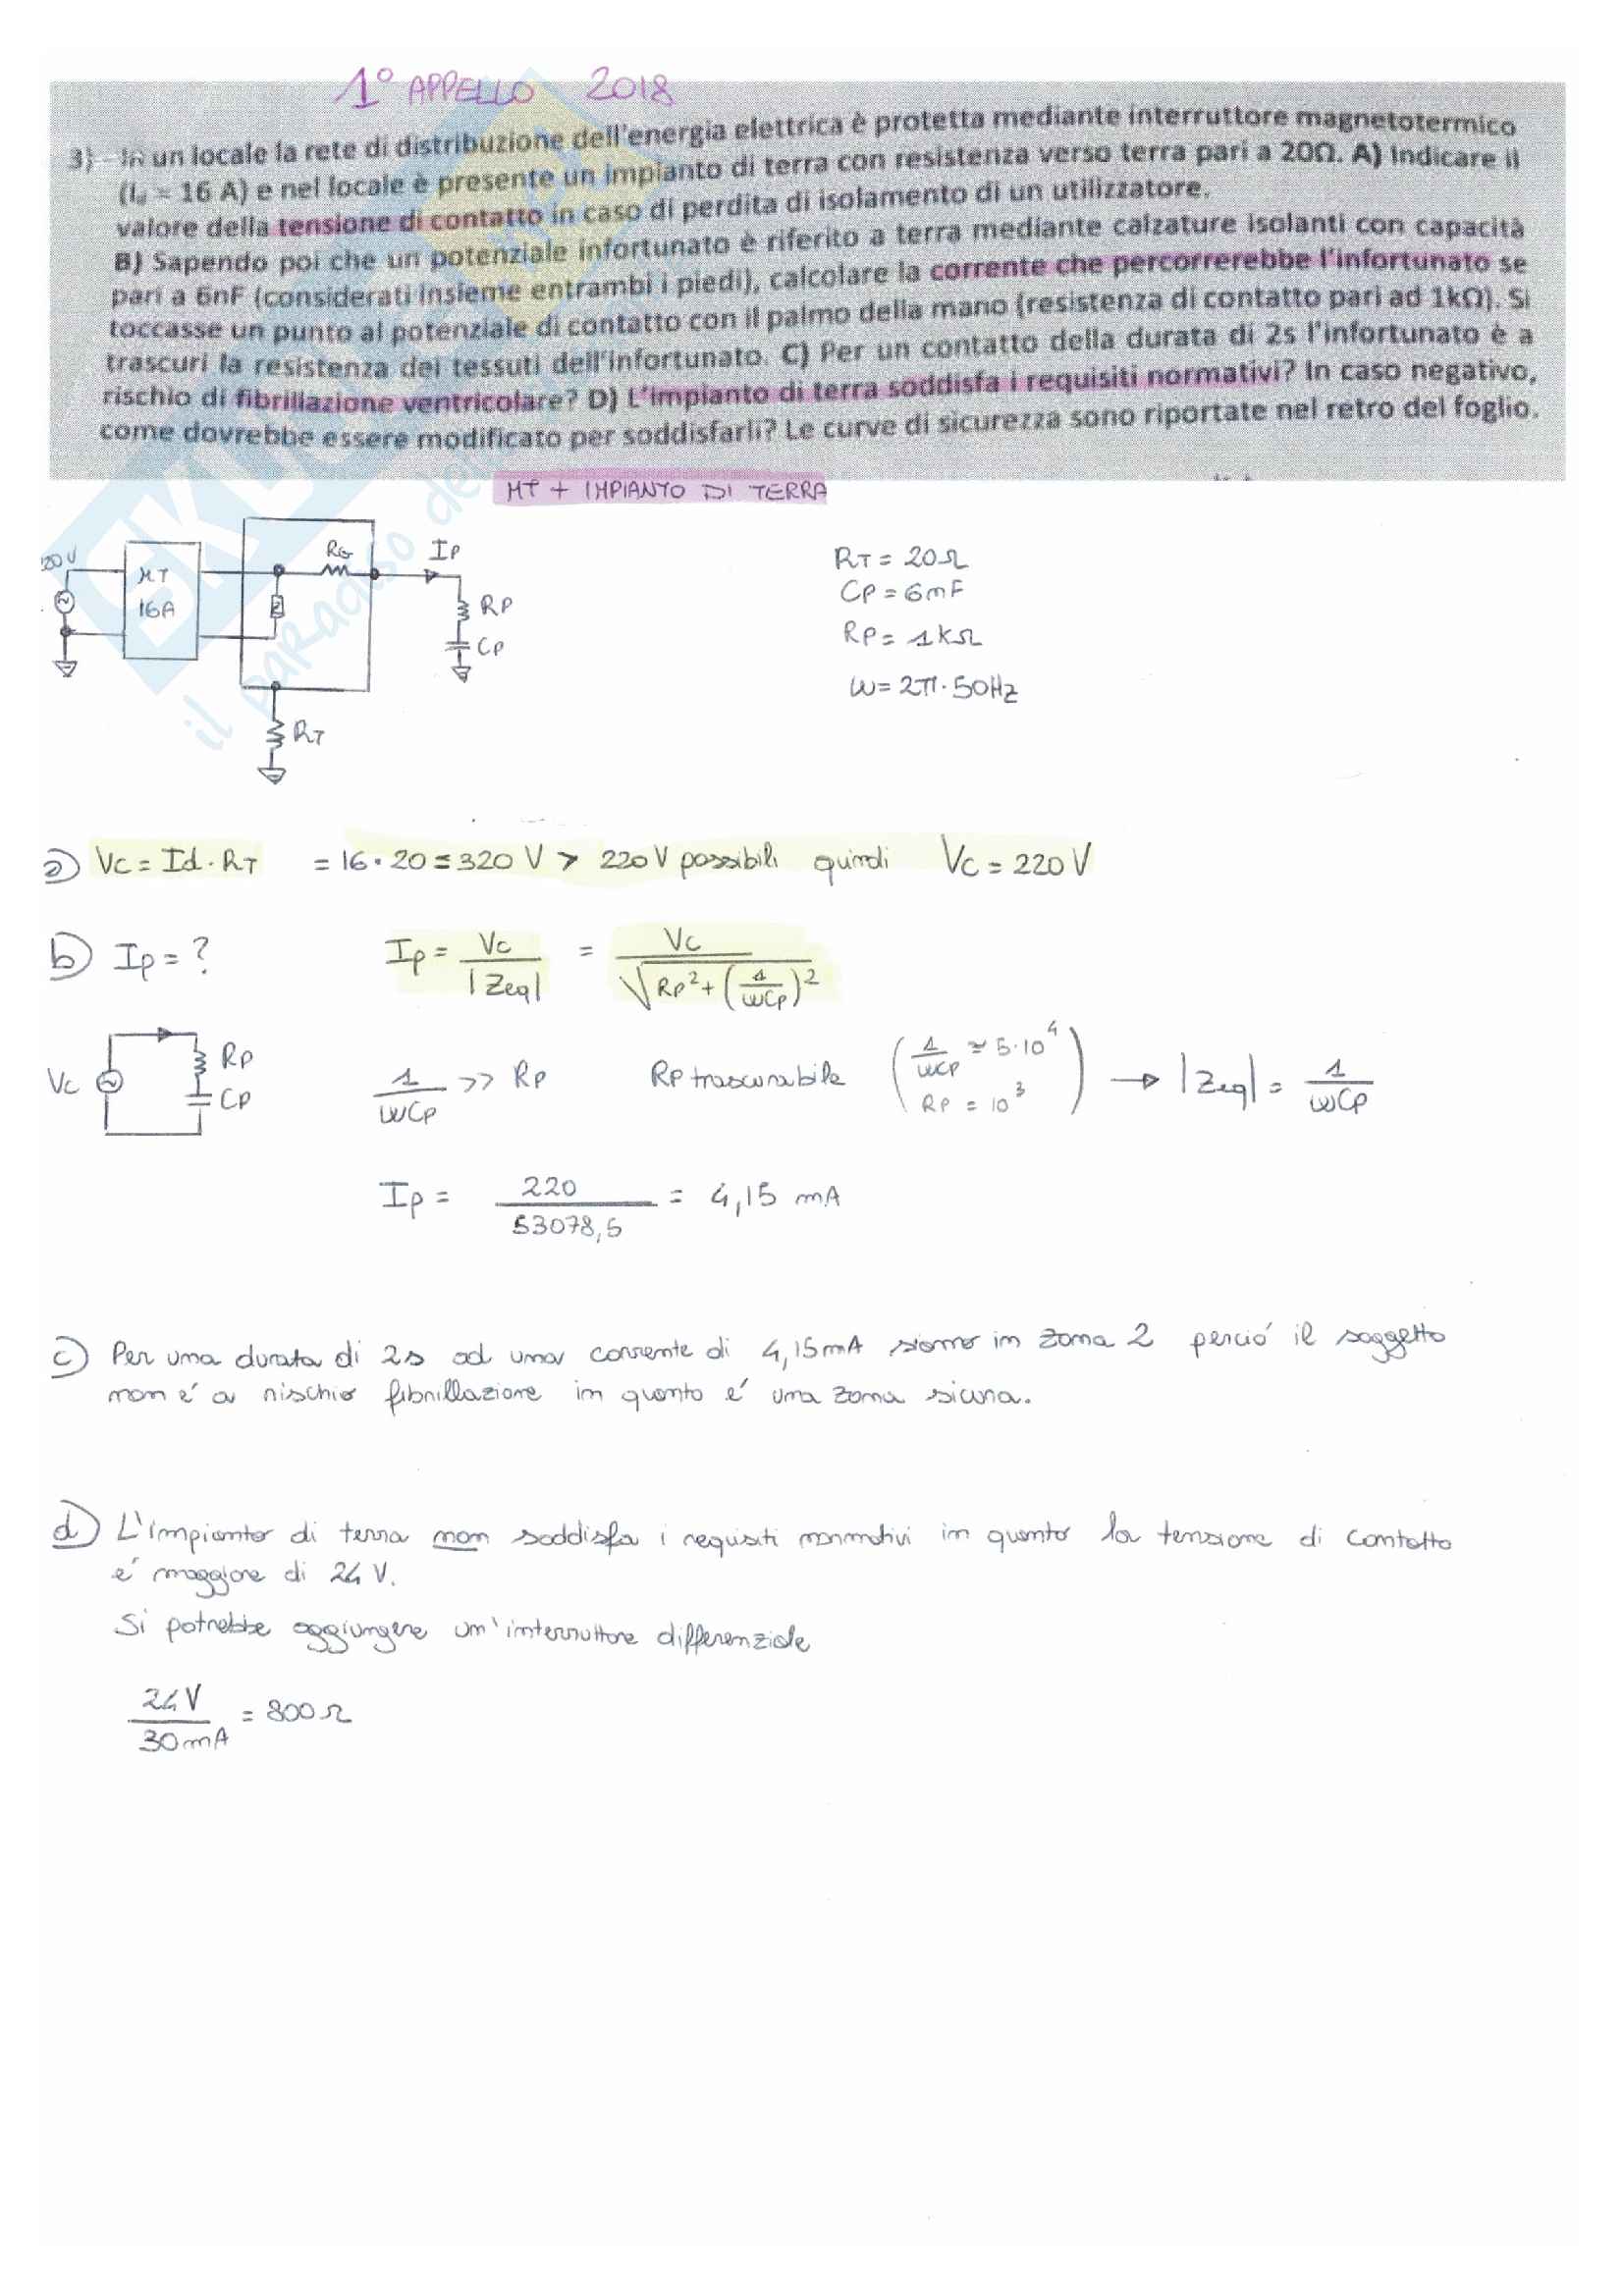 1° APPELLO 2018
3) In un locale la rete di distribuzione dell'energia elettrica è protetta mediante interruttore magnetotermico
(Id = 16 A) e nel locale è presente un impianto di terra con resistenza verso terra pari a 20Ω. A) Indicare il
valore della tensione di contatto in caso di perdita di isolamento di un utilizzatore.
B) Sapendo poi che un potenziale infortunato è riferito a terra mediante calzature isolanti con capacità
pari a 6nF (considerati insieme entrambi i piedi), calcolare la corrente che percorrerebbe l'infortunato se
toccasse un punto al potenziale di contatto con il palmo della mano (resistenza di contatto pari ad 1kΩ). Si
trascuri la resistenza dei tessuti dell'infortunato. C) Per un contatto della durata di 2s l'infortunato è a
rischio di fibrillazione ventricolare? D) L'impianto di terra soddisfa i requisiti normativi? In caso negativo,
come dovrebbe essere modificato per soddisfarli? Le curve di sicurezza sono riportate nel retro del foglio.
MT + IMPIANTO DI TERRA
20 V
MT
16A
RG
IP
RP
CP
RT
RT = 20Ω
CP = 6nF
RP = 1KΩ
ω = 2π · 50Hz
a) Vc = Id · RT = 16 · 20 = 320 V > 220 V possibili quindi Vc = 220 V
b) Ip = ? Ip = Vc / |Zeq| = Vc / √(Rp² + (1/ωCp)²)
Vc RP CP 1/ωCp >> Rp Rp trascurabile (1/ωCp ≃ 5·10⁴ Rp = 10³) → |Zeq| = 1/ωCp
Ip = 220 / 53078,5 = 4,15 mA
c) Per una durata di 2s ad una corrente di 4,15mA siamo in zona 2 perció il soggetto
non é a rischio fibrillazione in quanto é una zona sicura.
d) L'impianto di terra non soddisfa i requisiti normativi in quanto la tensione di contatto
é maggiore di 24 V.
Si potrebbe aggiungere un'interruttore differenziale
24V / 30mA = 800Ω
SKUOLA
il paradiso de